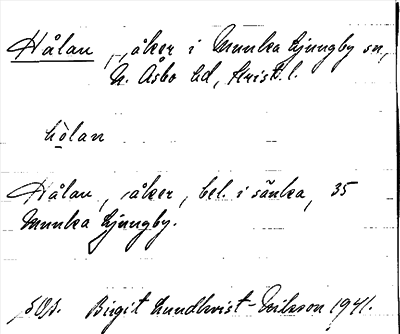 Hålan, åker i Munka Ljungby sn,
N. Åsbo hd, Krist. l.
hòlan
Hålan, åker, bel. i sänka, 35
Munka Ljungby.
Birgit Lundkvist-Erikson 1941.